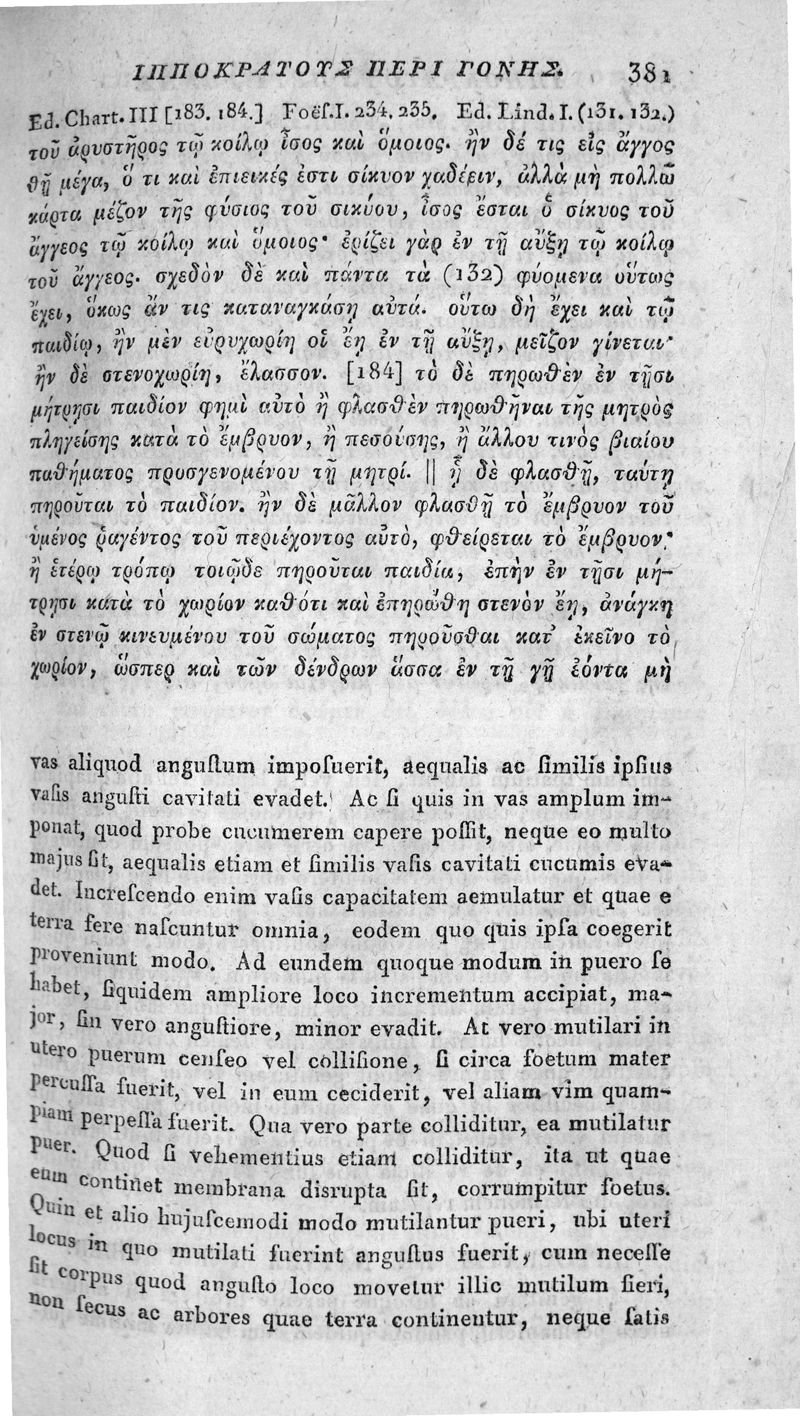 ΙΠΠΟΚΡΑΤΟΥΣ ΠΕΡΙ ΓΟΝΗΣ. 381
Ed. Chart. III [183. 184.] Foëſ. I. 234. 235. Ed. Lind. I. (131. 132.)
τοῦ ἀρυστῆρος τῷ κοίλῳ ἶσος καὶ ὅμοιος. ἢν δέ τις εἰς ἄγγος
θῇ μέγα, ὅ τι καὶ ἐπιεικές ἐστι σίκυον χαδέειν, ἀλλὰ μὴ πολλῷ
κάρτα μέζον τῆς φύσιος τοῦ σικύου, ἶσος ἔσται ὁ σίκυος τοῦ
ἄγγεος τῷ κοίλῳ καὶ ὅμοιος· ἐρίζει γὰρ ἐν τῇ αὔξῃ τῷ κοίλῳ
τοῦ ἄγγεος. σχεδὸν δὲ καὶ πάντα τὰ (132) φυόμενα οὕτως
ἔχει, ὅκως ἄν τις καταναγκάσῃ αὐτά. οὕτω δὴ ἔχει καὶ τῷ
παιδίῳ, ἢν μὲν εὐρυχωρίη οἱ ἔῃ ἐν τῇ αὔξῃ, μεῖζον γίνεται·
ἢν δὲ στενοχωρίη, ἔλασσον. [184] τὸ δὲ πηρωθὲν ἐν τῇσι
μήτρῃσι παιδίον φημὶ αὐτὸ ἢ φλασθὲν πηρωθῆναι τῆς μητρὸς
πληγείσης κατὰ τὸ ἔμβρυον, ἢ πεσούσης, ἢ ἄλλου τινὸς βιαίου
παθήματος προσγενομένου τῇ μητρί. || ᾗ δὲ φλασθῇ, ταύτῃ
πηροῦται τὸ παιδίον. ἢν δὲ μᾶλλον φλασθῇ τὸ ἔμβρυον τοῦ
ὑμένος ῥαγέντος τοῦ περιέχοντος αὐτὸ, φθείρεται τὸ ἔμβρυον·
ἢ ἑτέρῳ τρόπῳ τοιῷδε πηροῦται παιδία, ἐπὴν ἐν τῇσι μή-
τρῃσι κατὰ τὸ χωρίον καθότι καὶ ἐπηρώθη στενὸν ἔῃ, ἀνάγκη
ἐν στενῷ κινευμένου τοῦ σώματος πηροῦσθαι κατ᾽ ἐκεῖνο τὸ
χωρίον, ὥσπερ καὶ τῶν δένδρων ἅσσα ἐν τῇ γῇ ἐόντα μὴ
vas aliquod anguſtum impoſuerit, aequalis ac ſimilis ipſius
vaſis anguſti cavitati evadet. Ac ſi quis in vas amplum im-
ponat, quod probe cucumerem capere poſſit, neque eo multo
majus ſit, aequalis etiam et ſimilis vaſis cavitati cucumis eva-
det. Increſcendo enim vaſis capacitatem aemulatur et quae e
terra fere naſcuntur omnia, eodem quo quis ipſa coegerit
proveniunt modo. Ad eundem quoque modum in puero ſe
habet, ſiquidem ampliore loco incrementum accipiat, ma-
jor, ſin vero anguſtiore, minor evadit. At vero mutilari in
utero puerum cenſeo vel colliſione, ſi circa foetum mater
percuſſa fuerit, vel in eum ceciderit, vel aliam vim quam-
piam perpeſſa fuerit. Qua vero parte colliditur, ea mutilatur
puer. Quod ſi vehementius etiam colliditur, ita ut quae
eum continet membrana disrupta ſit, corrumpitur foetus.
Quin et alio hujuſcemodi modo mutilantur pueri, ubi uteri
locus in quo mutilati fuerint anguſtus fuerit, cum neceſſe
ſit corpus quod anguſto loco movetur illic mutilum fieri,
non ſecus ac arbores quae terra continentur, neque ſatis